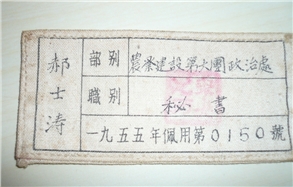 郝士涛
部别 農業建設第六團政治處
職别 秘書
一九五五年佩用第0150號